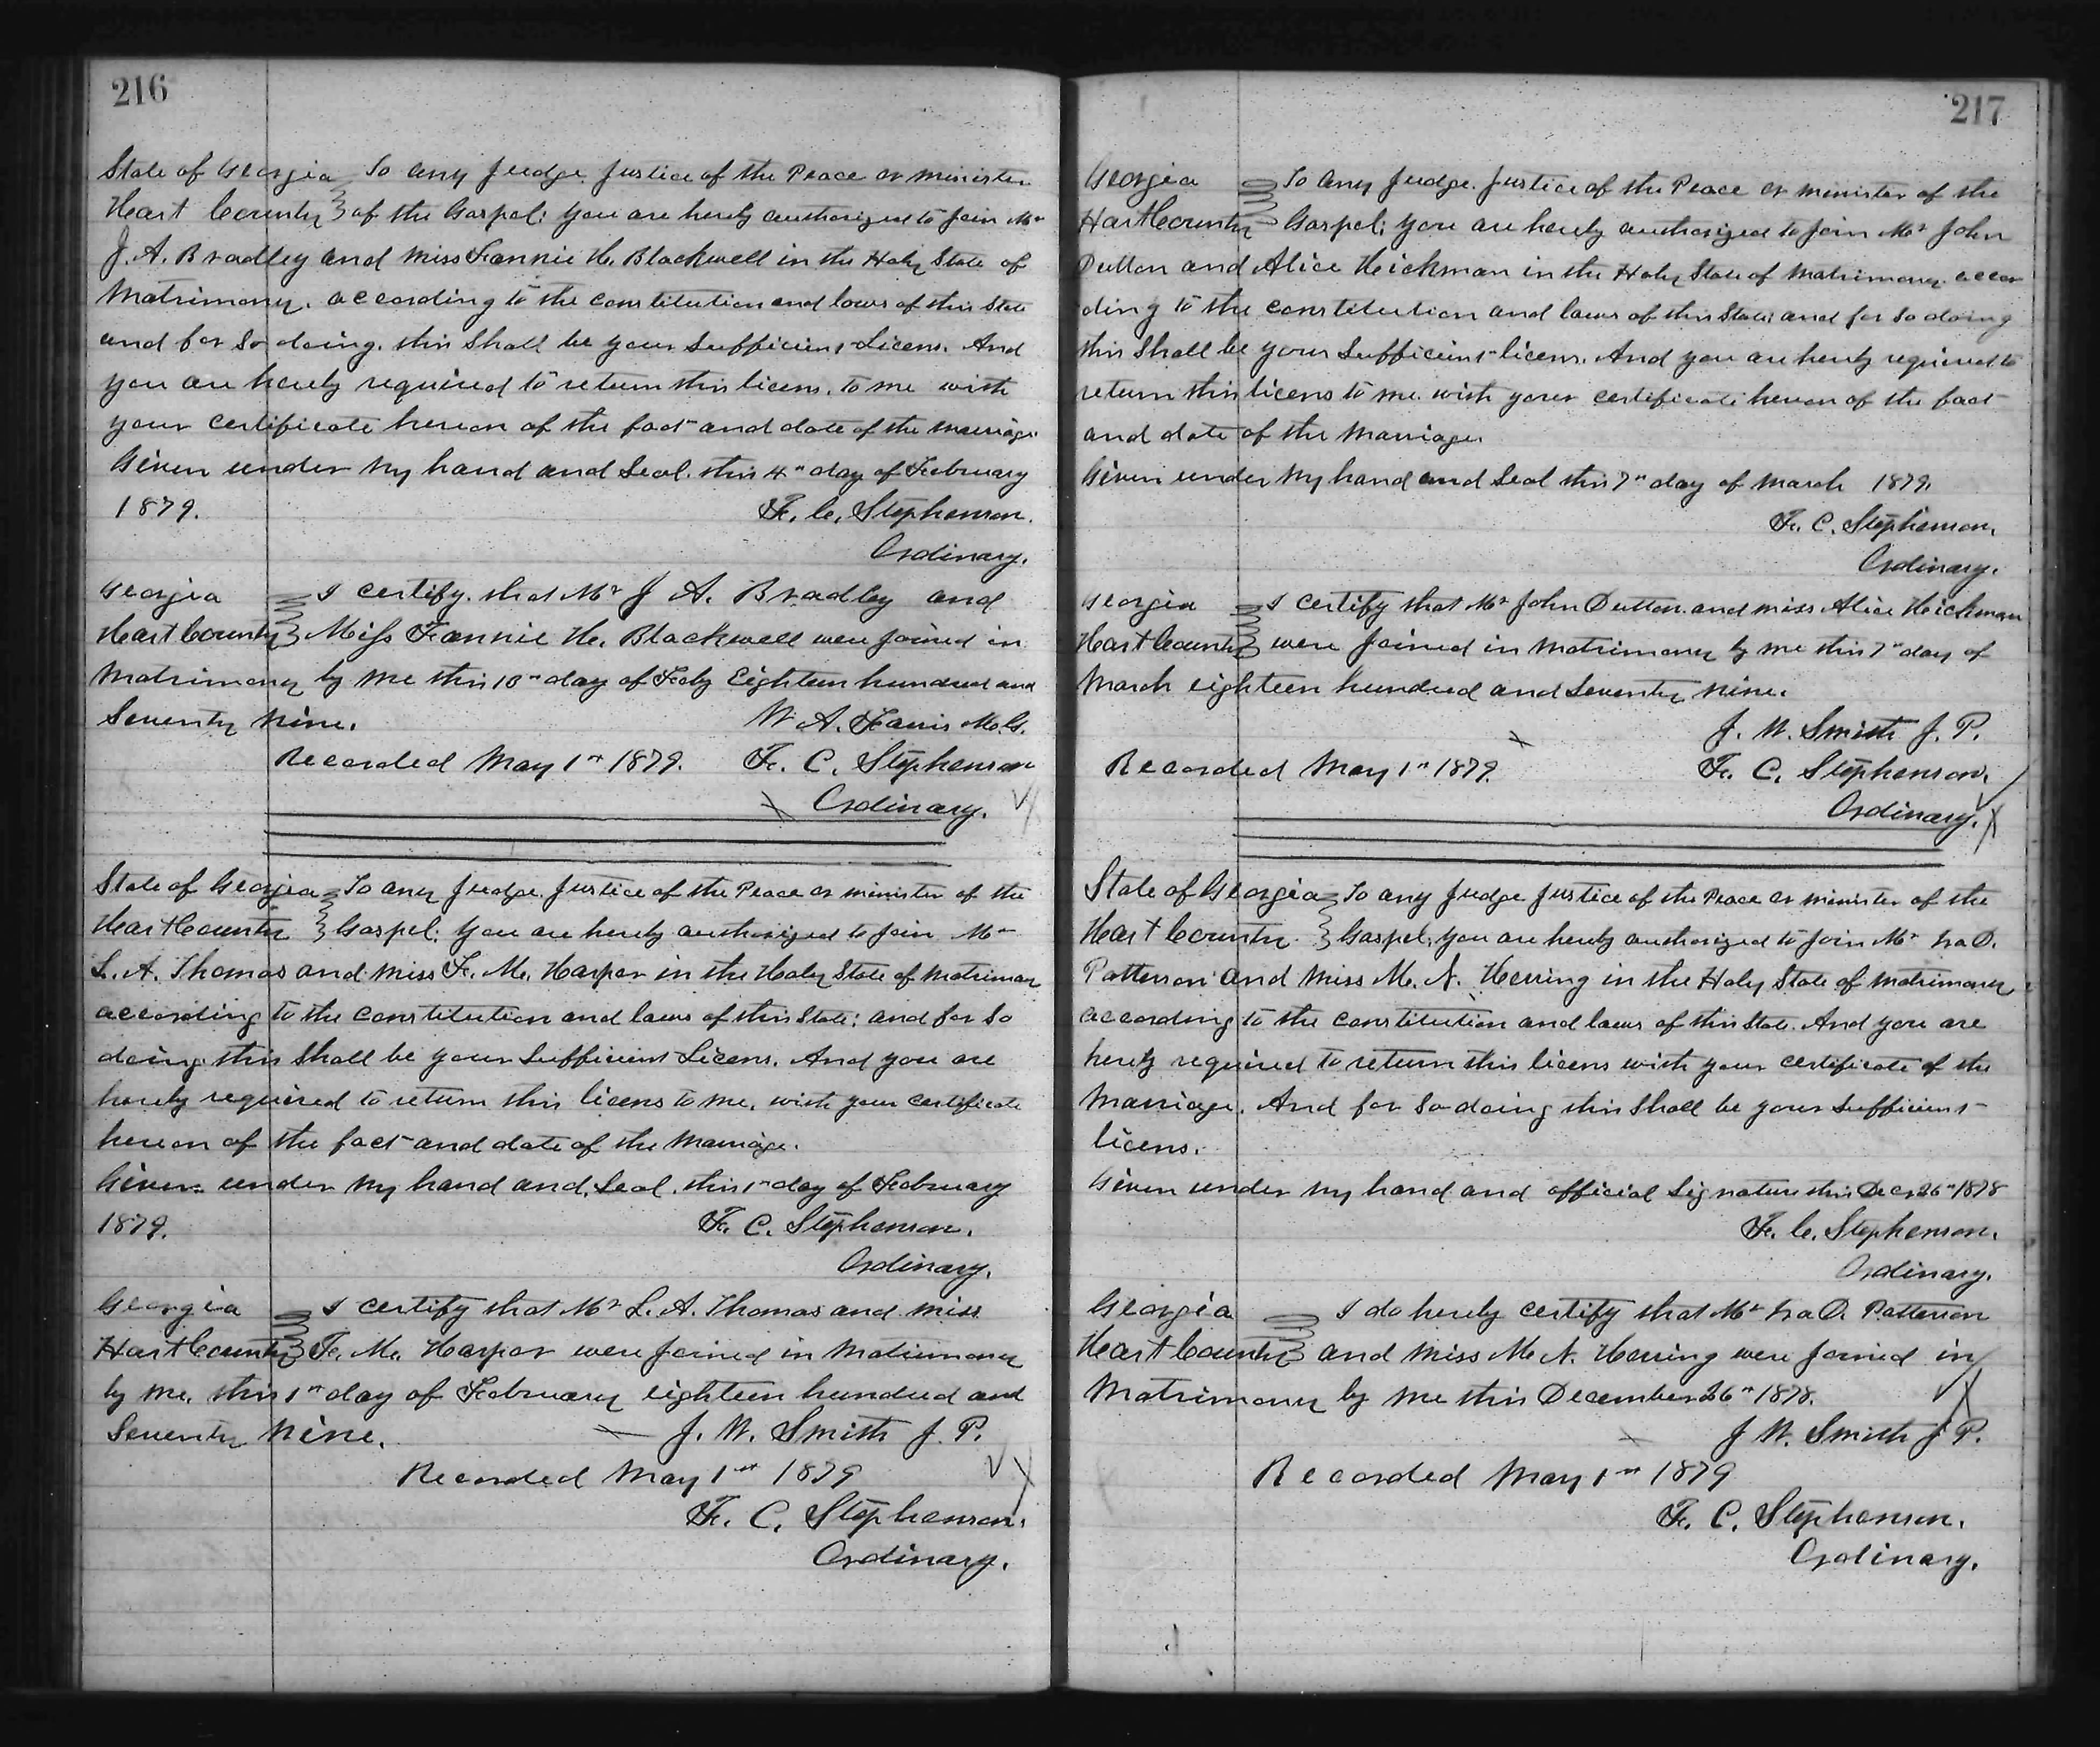 216
State of Georgia To any Judge. Justice of the Peace or minister
Hart County of the Gospel: you are hereby authorized to join Mr
J. A. Bradley and Miss Fannie H. Blackwell in the Holy State of
Matrimony. according to the constitution and laws of this State
and for So doing. this Shall be your Sufficient Licens. And
you are hereby required to return this licens. to me with
your certificate hereon of the fact and date of the marriage.
Given under my hand and Seal. this 4th day of February
1879. F. C. Stephenson.
Ordinary.
Georgia I certify. that Mr J A. Bradley and
Hart County Miss Fannie H. Blackwell were joined in
Matrimony by me this 10th day of Feby Eighteen hundred and
Seventy Nine. W. A. M. G.
Recorded May 1st 1879. F. C. Stephenson
Ordinary.
State of Georgia To any Judge. Justice of the Peace or minister of the
Hart County Gospel: you are hereby authorized to join Mr
L. A. Thomas and miss F. M. Harper in the Holy State of Matrimony
according to the constitution and laws of this State; and for So
doing. this Shall be your Sufficient Licens. And you are
hereby required to return this licens to me. with your certificate
hereon of the fact and date of the Marriage.
Given under my hand and Seal. this 1st day of February
1879. F. C. Stephenson.
Ordinary.
Georgia I certify that Mr L. A. Thomas and miss
Hart County F. M. Harper were joined in Matrimony
by me. this 1st day of February eighteen hundred and
Seventy Nine. J. W. Smith J. P.
Recorded May 1st 1879
F. C. Stephenson.
Ordinary.
217
Georgia To any Judge. Justice of the Peace or minister of the
Hart County Gospel; you are hereby authorized to join Mr John
Dutton and Alice Heickman in the Holy State of Matrimony. accor
ding to the constitution and laws of this State; and for So doing
this Shall be your Sufficient licens. And you are hereby required to
return this licens to me. with your certificate hereon of the fact
and date of the Marriage.
Given under my hand and Seal this 7th day of March 1879.
F. C. Stephenson.
Ordinary.
Georgia I certify that Mr John Dutton. and miss Alice Heickman
Hart County were joined in Matrimony by me this 7th day of
March eighteen hundred and Seventy Nine.
J. W. Smith J. P.
Recorded May 1st 1879. F. C. Stephenson.
Ordinary.
State of Georgia To any Judge Justice of the Peace or minister of the
Hart County. Gospel; you are hereby authorized to join Mr
Patterson and Miss M. N. Herring in the Holy State of Matrimony
according to the constitution and laws of this State. And you are
hereby required to return this licens with your certificate of the
Marriage. And for So doing this Shall be your Sufficient
licens.
Given under my hand and official Signature this Dec. 26th 1878
F. C. Stephenson.
Ordinary.
Georgia I do hereby certify that Mr Patterson
Hart County and Miss M. N. Herring were joined in
Matrimony by me this December 26th 1878.
J W. Smith J P.
Recorded May 1st 1879
F. C. Stephenson.
Ordinary.